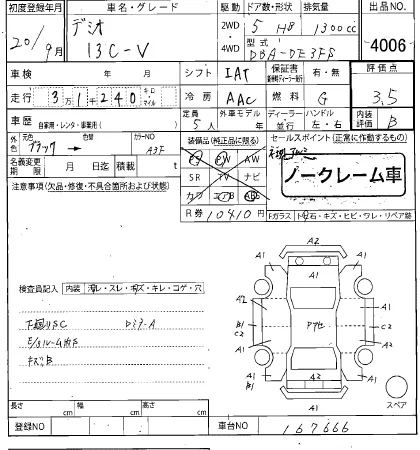 初度登録年月 車名・グレード 駆動 ドア数・形状 排気量 出品No.
20/9月 デミオ 13C-V 2WD 5 HB 1300cc
4WD 型式 DBA-DE3FS 4006
車検 年 月 シフト IAT 保証書 有・無 評価点
走行 3万1千240 キロ・マイル 冷房 AAC 燃料 G 3.5
車歴 自家用・レンタ・事業用( ) 定員 5人 外車モデル 年 ディーラー・並行 ハンドル 左・右 内装評価 B
外色 ブラック → 色替 カラーNO A3F 装備品(純正品に限る) セールスポイント(正常に作動するもの)
名義変更期限 月 日迄 積載 t PS PW AW
SR TV ナビ
ノークレーム車
注意事項(欠品・修復・不具合箇所および状態)
カワ エアB ABS
R券 10410円 Fガラス 飛石・キズ・ヒビ・ワレ・リペア跡
A2
A1 A1
A1
検査員記入 内装 汚レ・スレ・キズ・キレ・コゲ・穴
A2 A1
B1 C2 アケセ C2 B1
下廻りSC
キズB
A1 A1
A1 A2
A1
長さ cm 幅 cm 高さ cm スペア
登録NO 車台NO 167666